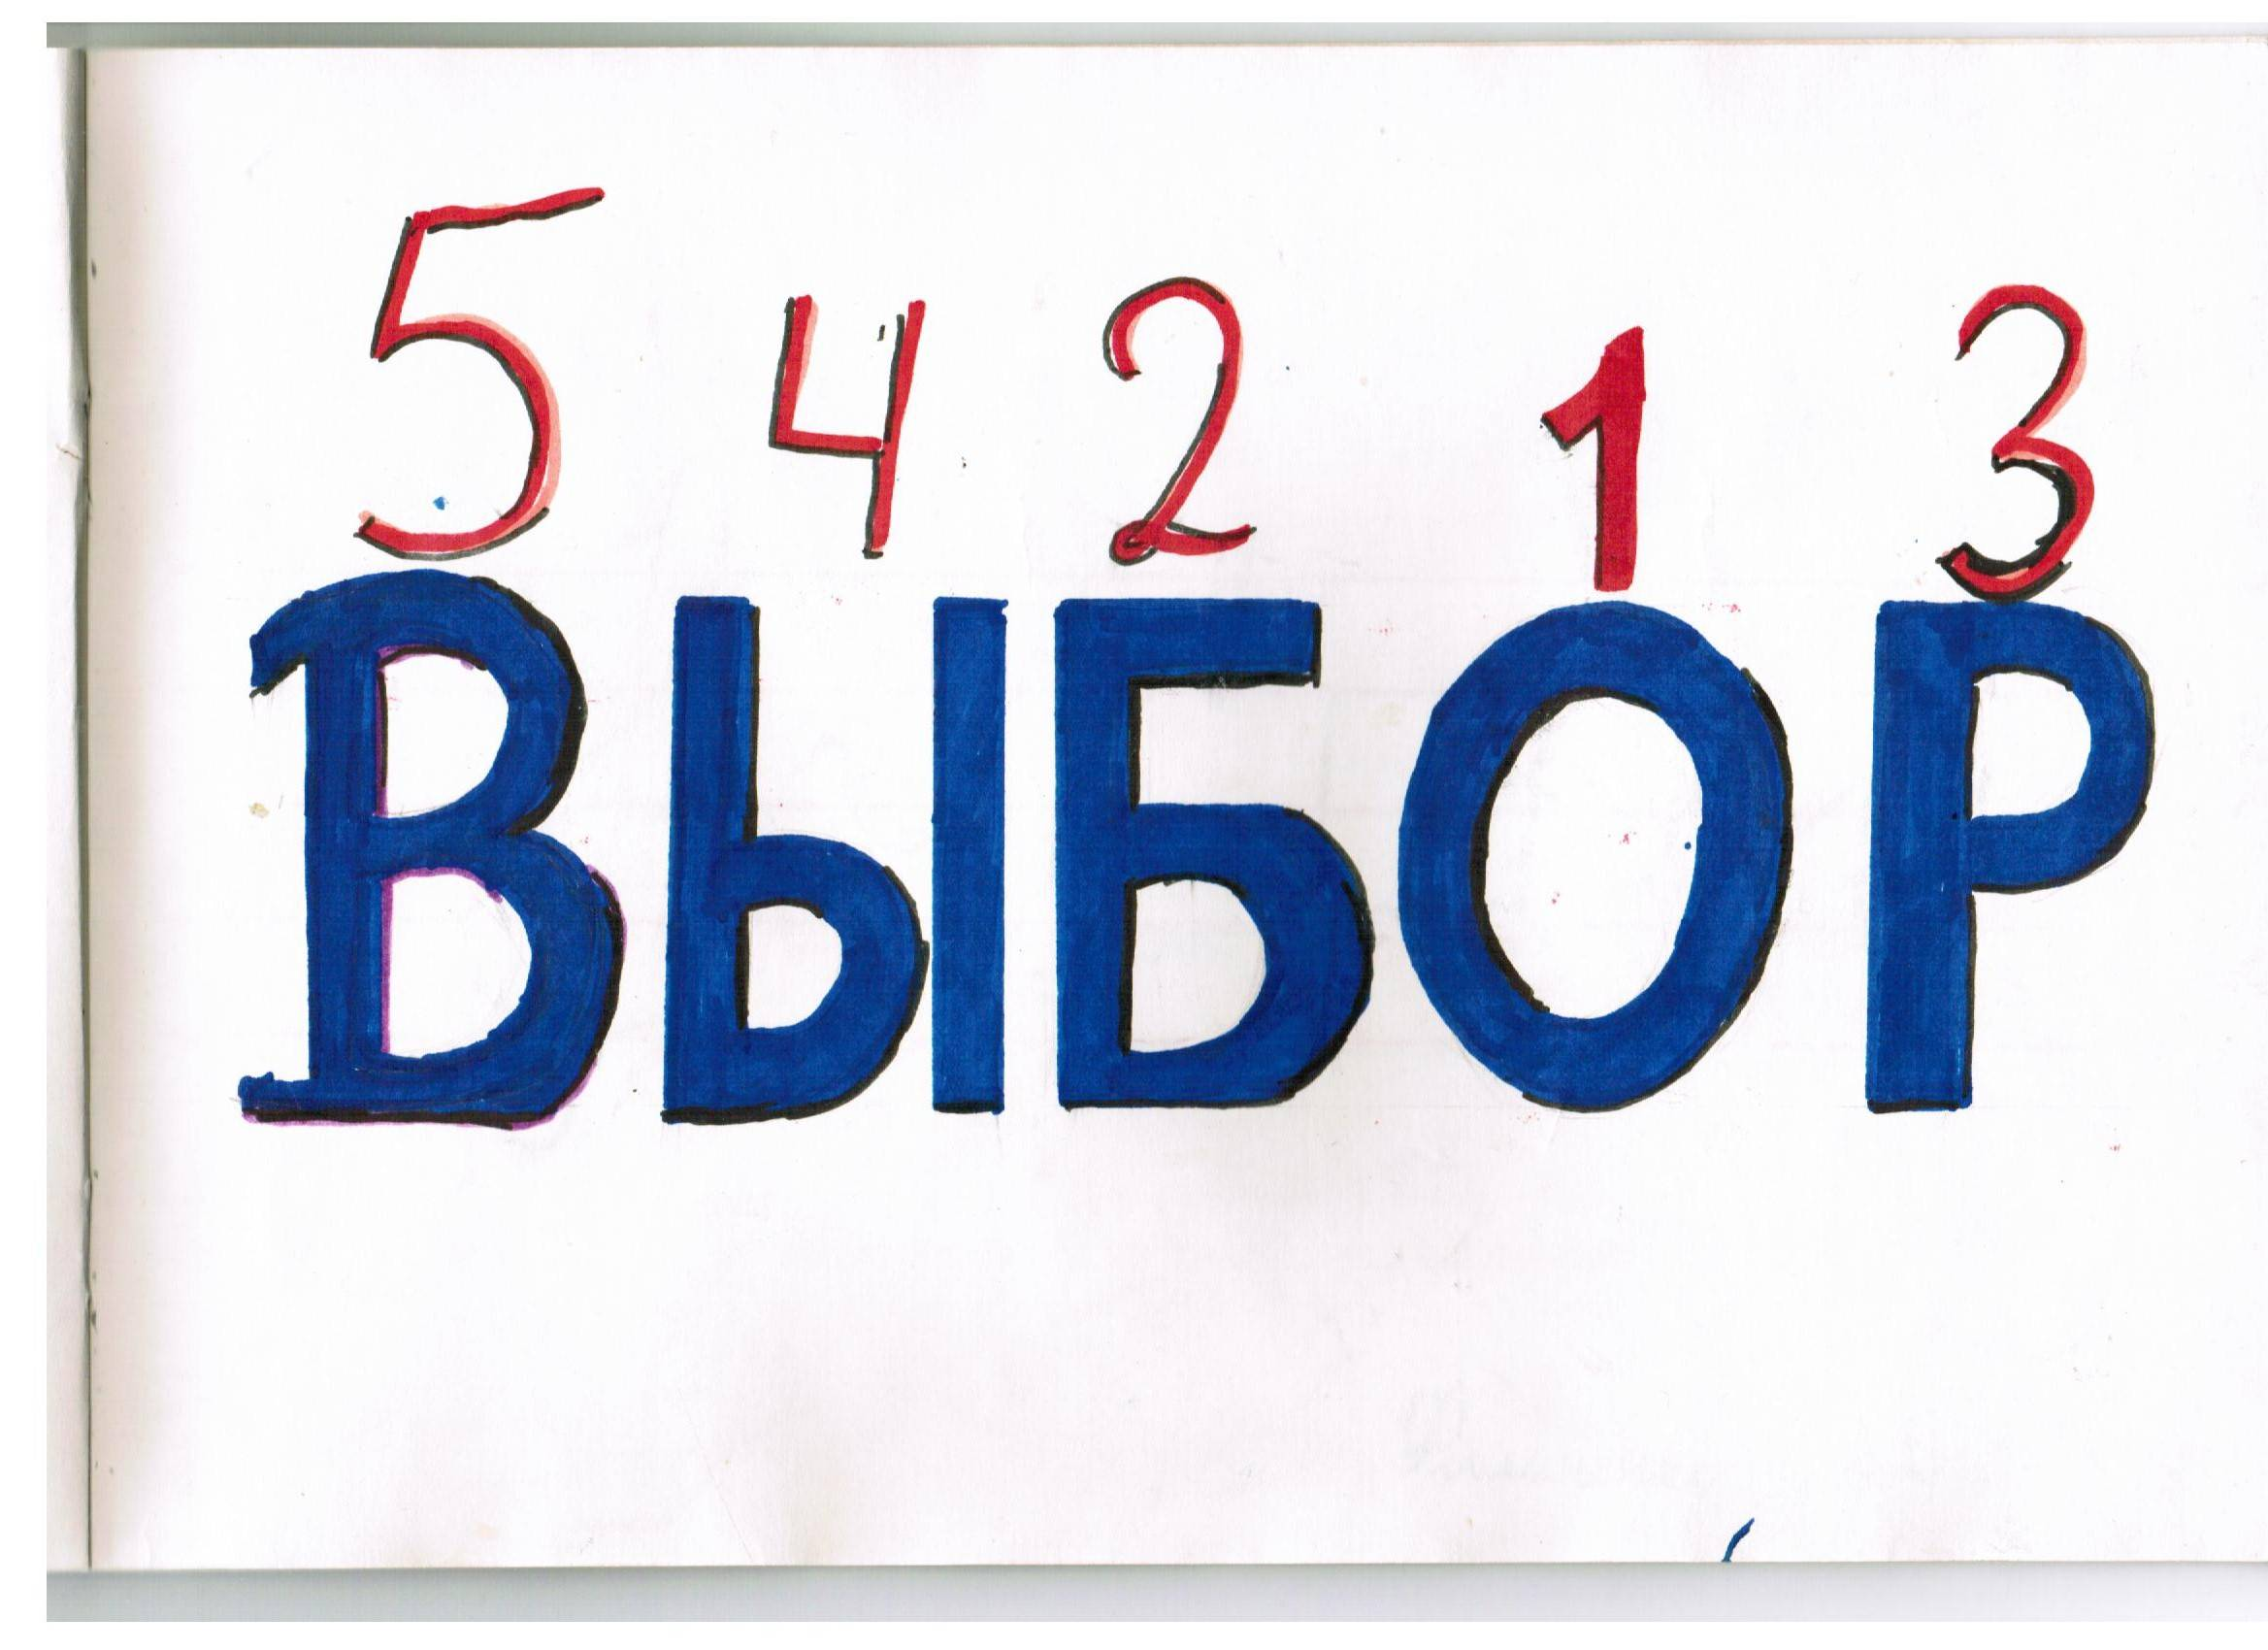 5 4 2 1 3
ВЫБОР